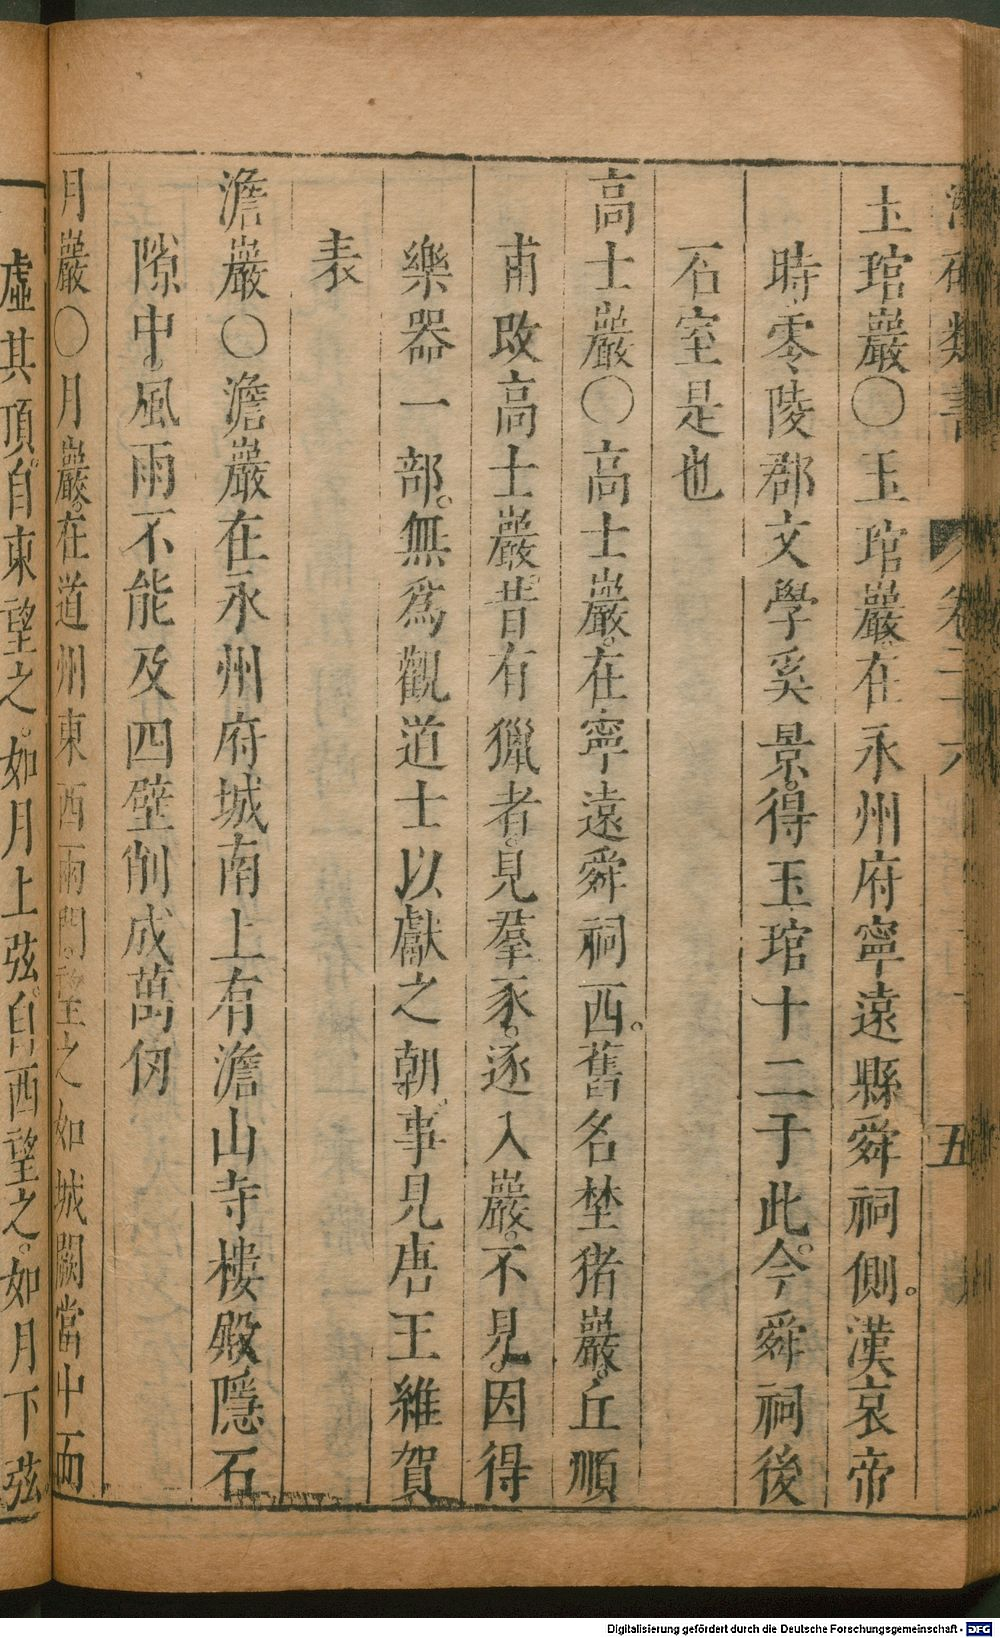 類書 卷二六 五
玉琯巖○玉琯巖。在永州府寧遠縣舜祠側。漢哀帝
時零陵郡文學奚景。得玉琯十二于此。今舜祠後
石室是也
高士巖○高士巖。在寧遠舜祠西。舊名埜猪巖。丘順
甫改高士巖。昔有獵者。見羣豕。逐入巖。不見。因得
樂器一部。無爲觀道士以獻之朝。事見唐王維賀
表
澹巖○澹巖在永州府城南上有澹山寺樓殿隱石
隙中。風雨不能及四壁削成萬仞
月巖○月巖。在道州東西兩門。望之如城闕當中而
虛其頂。自東望之。如月上弦。自西望之。如月下弦。
Digitalisierung gefördert durch die Deutsche Forschungsgemeinschaft - DFG